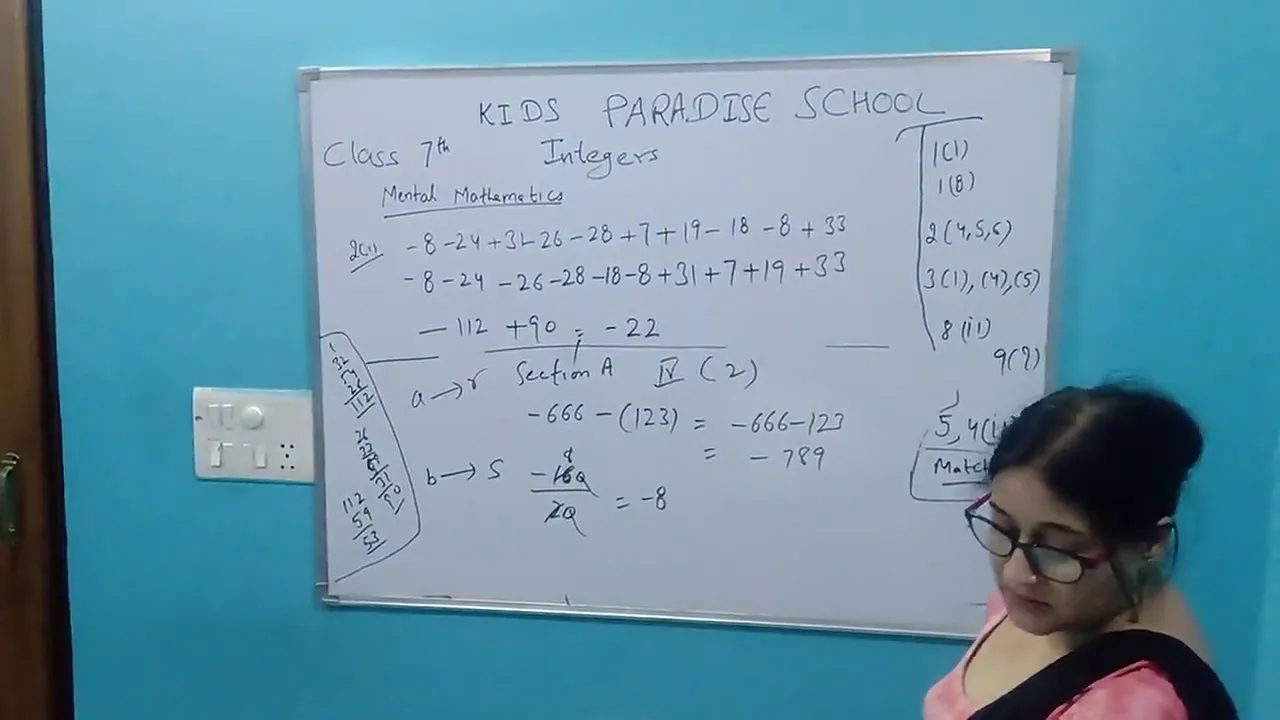 KIDS PARADISE SCHOOL
Class 7th Integers
Mental Mathematics
2(1) -8-24+31-26-28+7+19-18-8+33
-8-24-26-28-18-8+31+7+19+33
-112 +90 = -22
a→r Section A IV (2)
-666-(123) = -666-123
= -789
b→S -160/20 = -8
8
1(1)
1(8)
2(4,5,6)
3(1),(4),(5)
8(ii)
9(7)
5, 4(i
Match
1
32
112
26
33
112
59
53